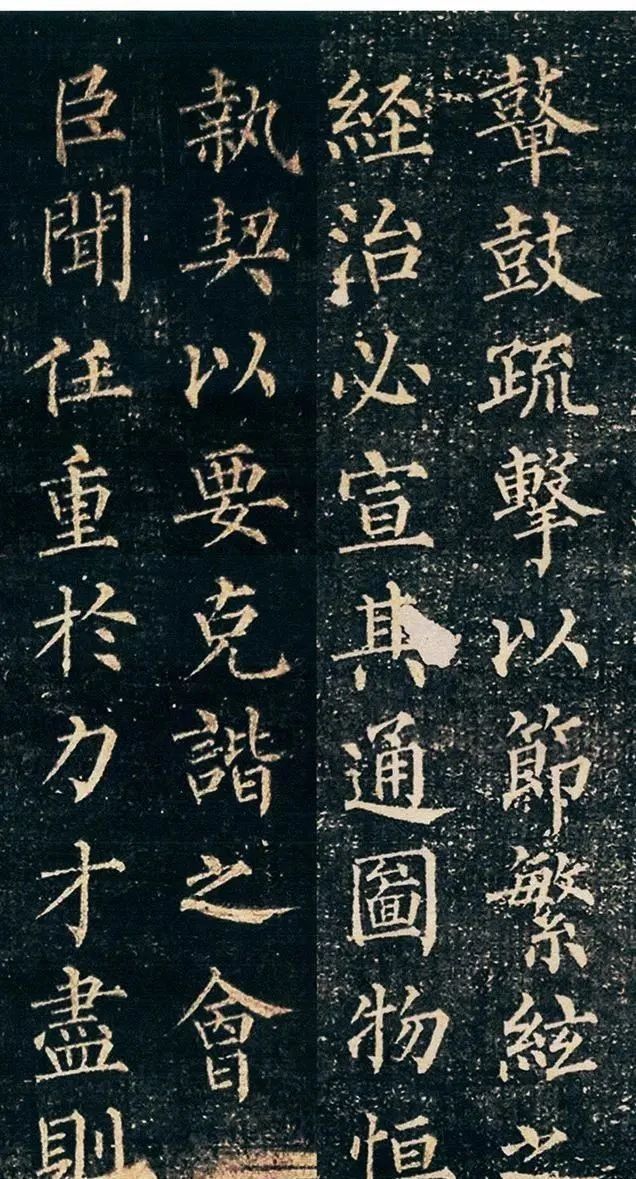 鼙鼓疏擊以節繁絃之
經治必宣其通圖物恒
執契以要克諧之會
臣聞任重於力才盡則